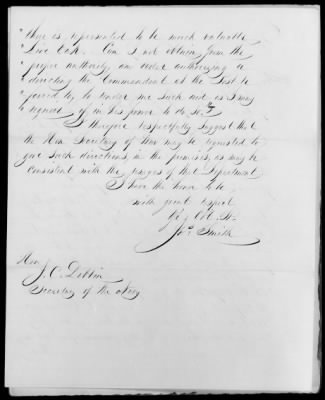 " there is represented to be much valuable
" Live Oak. Can I not obtain from the
" proper authority an order authorizing &
" directing the Commandant at the Post to
" permit to tender me such aid as I may
" request, if in his power to do so."
I therefore respectfully suggest that
the Hon. Secretary of War may be requested to
give such directions, in the premises, as may be
consistent with the usages of that Department.
I have the honor to be
with great respect
Yr. Obt. St.
Jos. Smith
Hon.
J. C. Dobbin
Secretary of the Navy